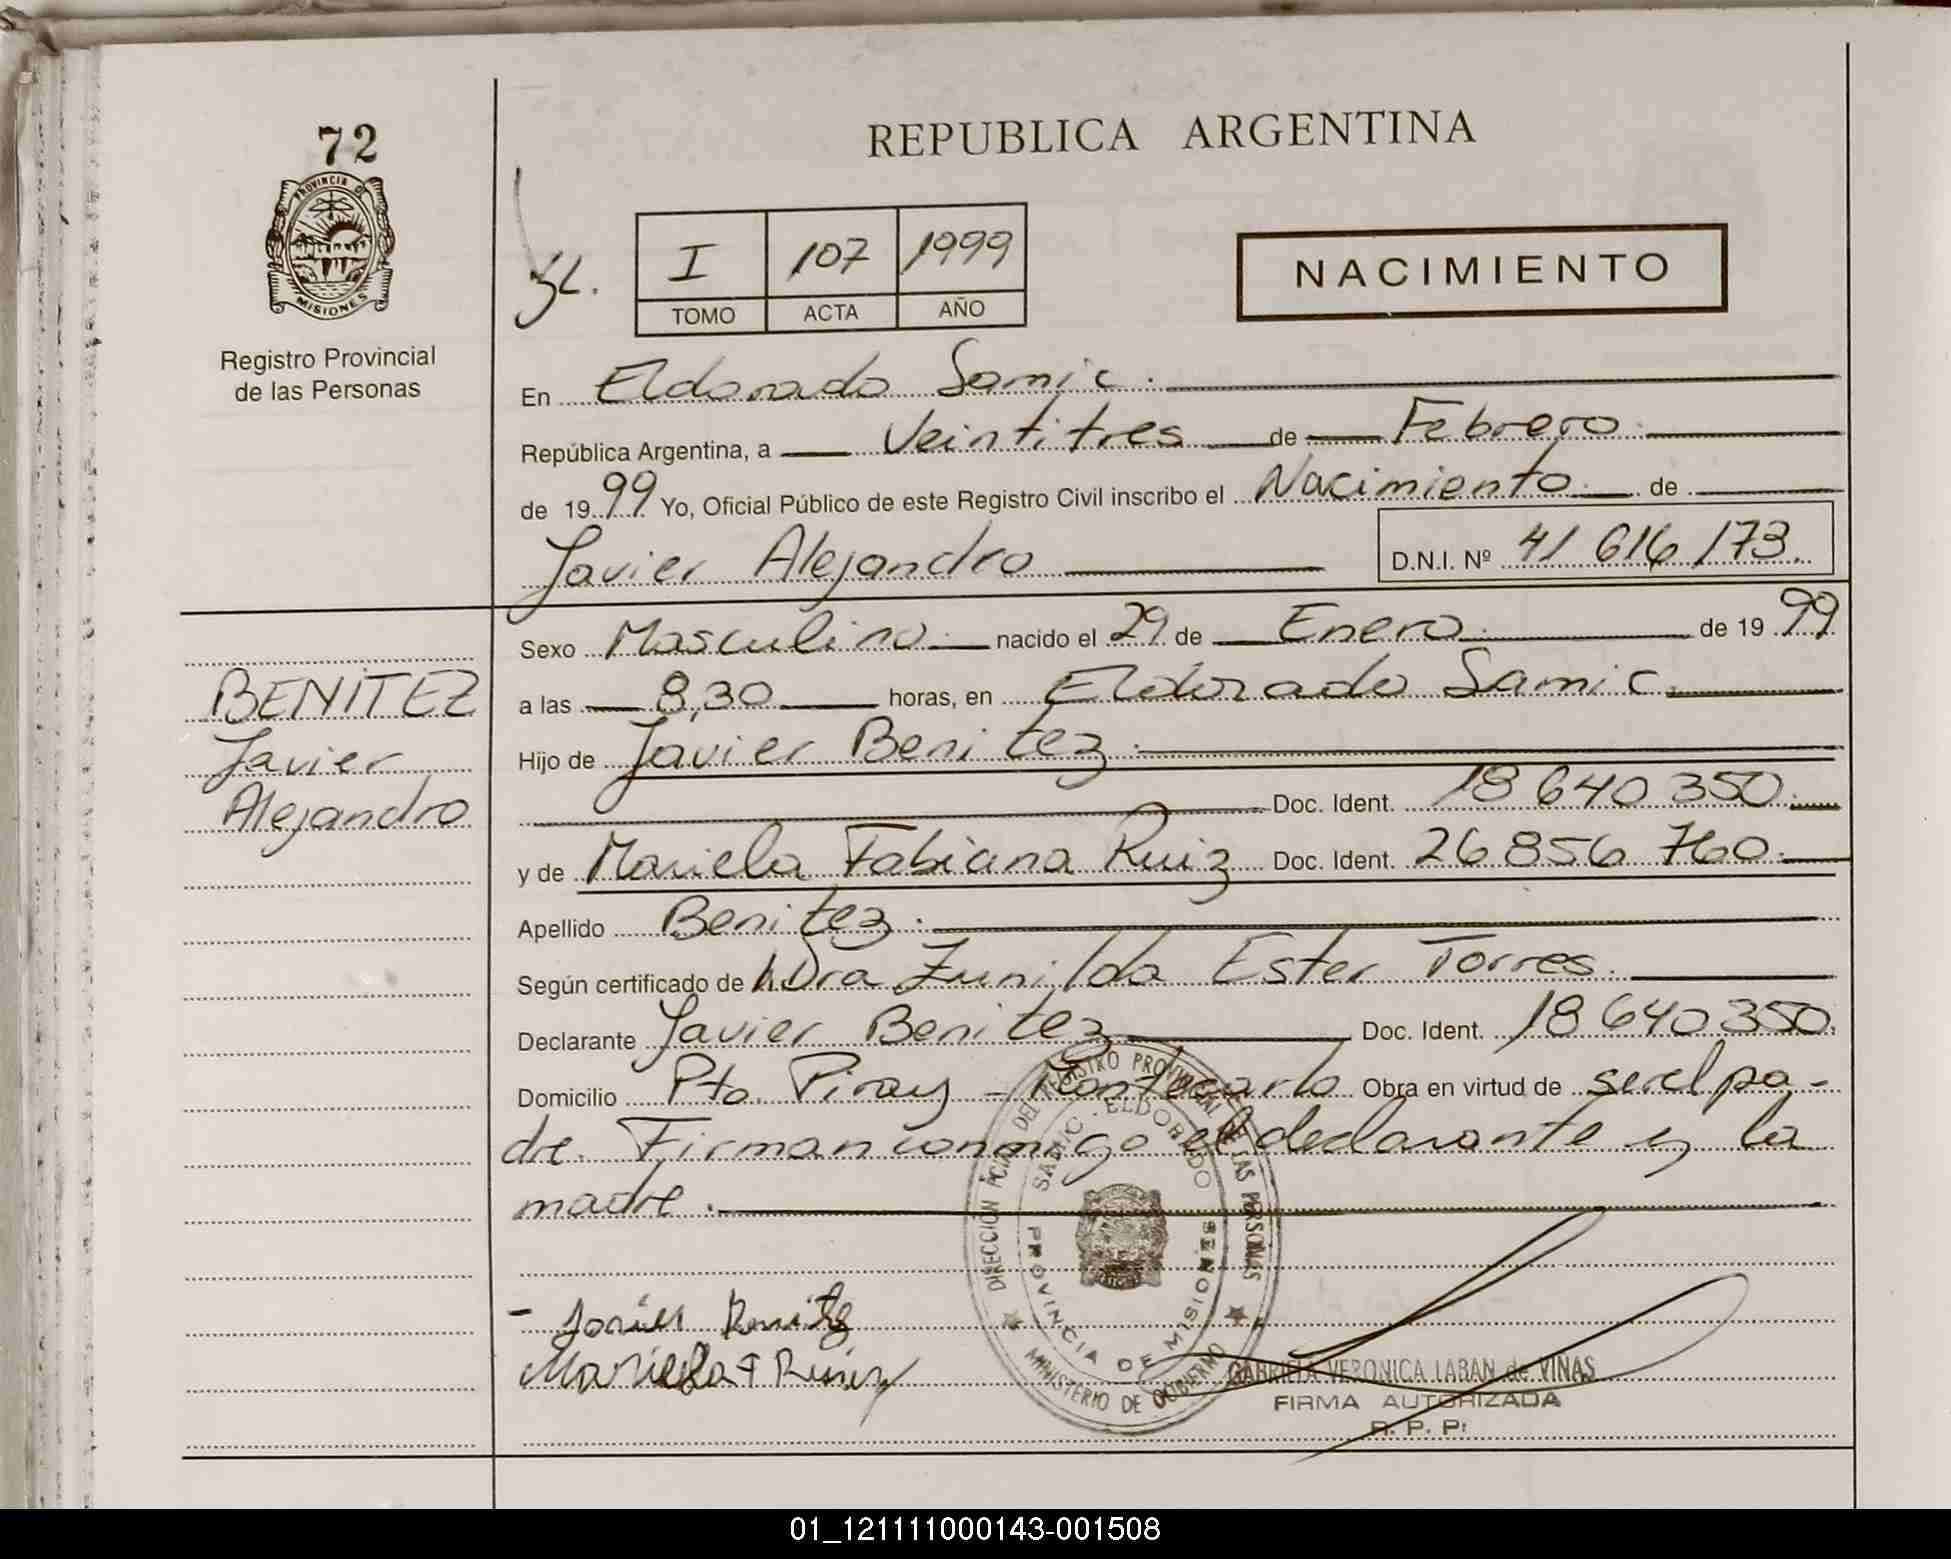 72
PROVINCIA DE
MISIONES
Registro Provincial
de las Personas
REPUBLICA ARGENTINA
I 107 1999
TOMO ACTA AÑO
NACIMIENTO
En Eldorado Samic.
República Argentina, a Veintitres de Febrero.
de 1999 Yo, Oficial Público de este Registro Civil inscribo el Nacimiento. de
Javier Alejandro D.N.I. Nº 41 616 173.
Sexo Masculino. nacido el 29 de Enero. de 1999
BENITEZ
Javier
Alejandro
a las 8,30 horas, en Eldorado Samic.
Hijo de Javier Benitez.
Doc. Ident. 18 640 350.
y de Mariela Fabiana Ruiz Doc. Ident. 26 856 760.
Apellido Benitez.
Según certificado de Dra Zunilda Ester Torres.
Declarante Javier Benitez Doc. Ident. 18 640 350.
Domicilio Pto. Piray - Montecarlo Obra en virtud de ser el pa-
dre. Firman conmigo el declarante y la
madre.
DIRECCIÓN PCIAL. DEL REGISTRO PROVINCIAL DE LAS PERSONAS
SAMIC - ELDORADO
PROVINCIA DE MISIONES
MINISTERIO DE GOBIERNO
- Javier Benitez
Mariela F Ruiz
GABRIELA VERONICA LABAN de VINAS
FIRMA AUTORIZADA
R. P. P.
01_121111000143-001508